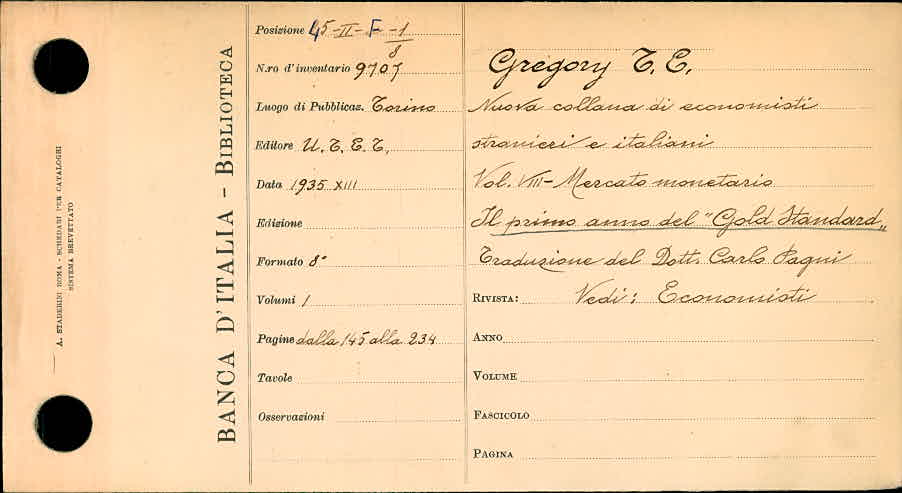 A. STADERINI ROMA - SCHEDARI PER CATALOGHI
SISTEMA BREVETTATO
BANCA D'ITALIA - BIBLIOTECA
Posizione 45-II-F-1/8
N.ro d'inventario 9707
Luogo di Pubblicaz. Torino
Editore U.T.E.T.
Data 1935 XIII
Edizione
Formato 8°
Volumi 1
Pagine dalla 145 alla 234
Tavole
Osservazioni
Gregory T. E.
Nuova collana di economisti
stranieri e italiani
Vol. VIII - Mercato monetario
Il primo anno del "Gold Standard„
Traduzione del Dott. Carlo Pagni
RIVISTA: Vedi: Economisti
ANNO
VOLUME
FASCICOLO
PAGINA